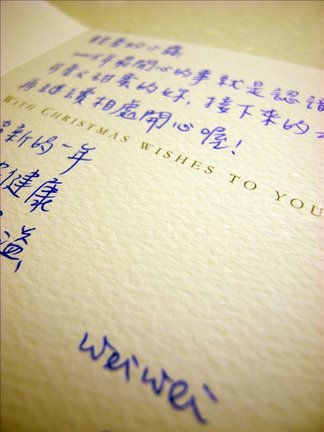 親愛的小露
2008年最開心的事就是認識
可愛又甜美的妳,接下來的
再繼續相處開心喔!
WITH CHRISTMAS WISHES TO YOU
新的一年
健康
溢
weiwei